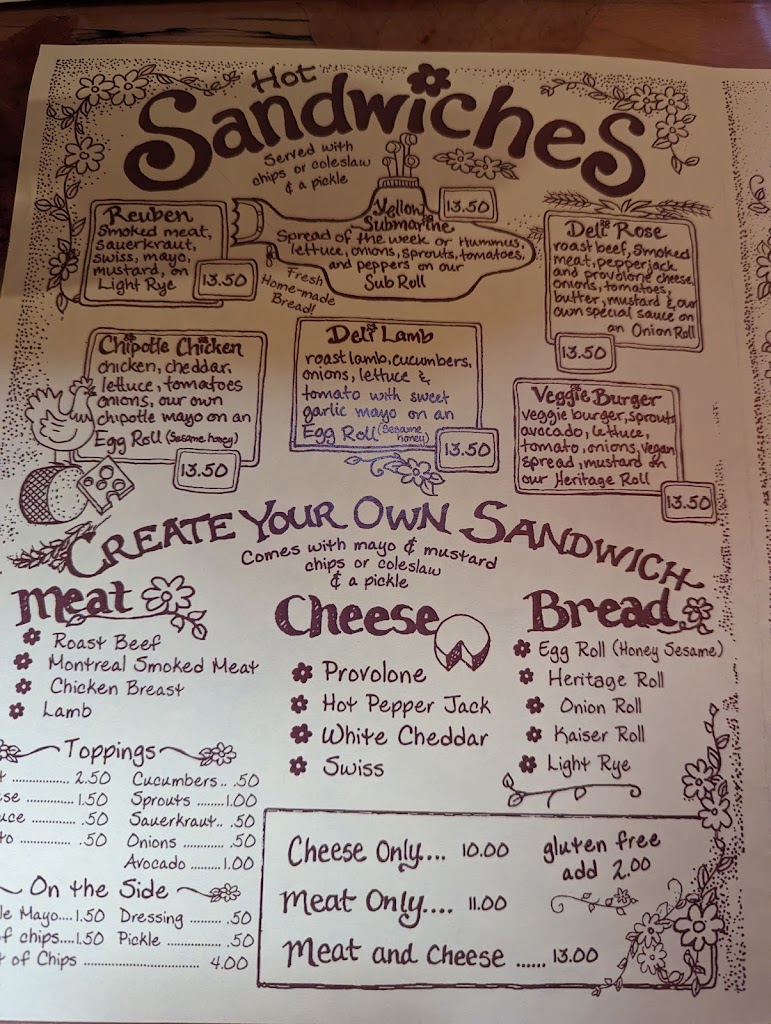 Hot
Sandwiches
Served with
chips or coleslaw
& a pickle
Reuben
Smoked meat,
sauerkraut,
swiss, mayo,
mustard, on
Light Rye
13.50
Yellow
Submarine
13.50
Spread of the week or Hummus,
lettuce, onions, sprouts, tomatoes,
and peppers on our
Sub Roll
Fresh
Home-made
Bread!
Deli Rose
roast beef, smoked
meat, pepperjack
and provolone cheese,
onions, tomatoes,
butter, mustard & our
own special sauce on
an Onion Roll
13.50
Chipotle Chicken
chicken, cheddar,
lettuce, tomatoes
onions, our own
chipotle mayo on an
Egg Roll (Sesame honey)
13.50
Deli Lamb
roast lamb, cucumbers,
onions, lettuce &
tomato with sweet
garlic mayo on an
Egg Roll (Sesame honey)
13.50
Veggie Burger
veggie burger, sprouts
avocado, lettuce,
tomato, onions, vegan
spread, mustard on
our Heritage Roll
13.50
Create Your Own Sandwich
Comes with mayo & mustard
chips or coleslaw
& a pickle
Meat
Roast Beef
Montreal Smoked Meat
Chicken Breast
Lamb
Cheese
Provolone
Hot Pepper Jack
White Cheddar
Swiss
Bread
Egg Roll (Honey Sesame)
Heritage Roll
Onion Roll
Kaiser Roll
Light Rye
Toppings
t .............. 2.50 Cucumbers.. .50
se ........... 1.50 Sprouts ........1.00
uce .......... .50 Sauerkraut.. .50
to ............ .50 Onions ......... .50
Avocado ........1.00
On the Side
le Mayo....1.50 Dressing ......... .50
of chips....1.50 Pickle ............... .50
t of Chips .............................. 4.00
Cheese Only.... 10.00
Meat Only.... 11.00
Meat and Cheese ...... 13.00
gluten free
add 2.00